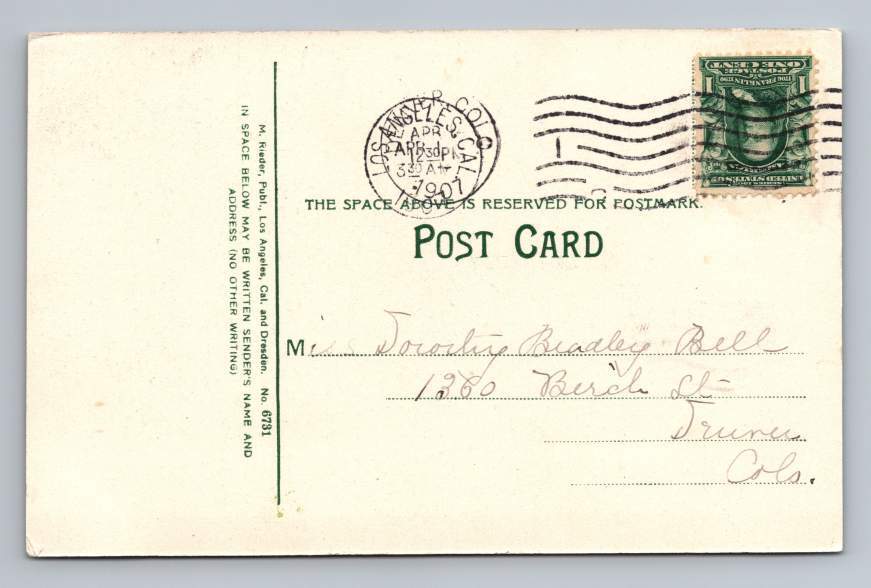 LOS ANGELES, CAL.
DENVER COLO
APR
APR
12 30 PM
3 30 AM
1907
ONE CENT
POSTAGE
1 FRANKLIN 1
UNITED STATES
THE SPACE ABOVE IS RESERVED FOR POSTMARK.
POST CARD
Miss Dorothy Bradley Bell
1360 Berch St
Denver
Colo.
M. Rieder, Publ. Los Angeles, Cal. and Dresden. No. 6731
IN SPACE BELOW MAY BE WRITTEN SENDER'S NAME AND
ADDRESS (NO OTHER WRITING)